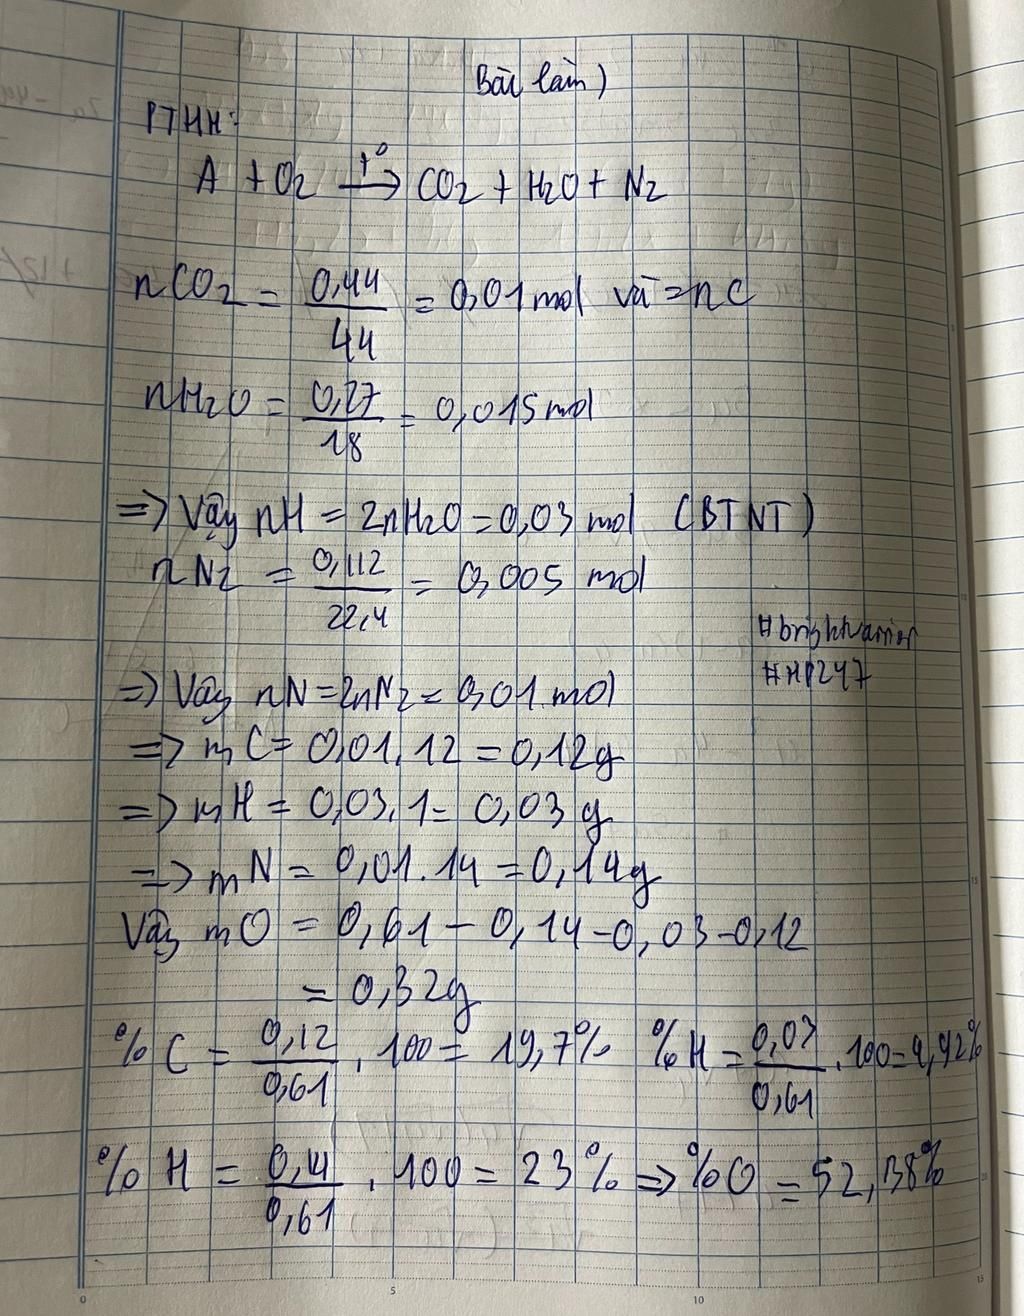 Bài làm)
PTHH:
A + O2 t°→ CO2 + H2O + N2
nCO2 = 0,44/44 = 0,01 mol và = nC
nH2O = 0,27/18 = 0,015 mol
=> Vậy nH = 2nH2O = 0,03 mol (BTNT)
nN2 = 0,112/22,4 = 0,005 mol
#brightwarrior
#HP247
=> Vậy nN = 2nN2 = 0,01 mol
=> mC = 0,01.12 = 0,12g
=> mH = 0,03.1 = 0,03 g
=> mN = 0,01.14 = 0,14g
Vậy mO = 0,61 - 0,14 - 0,03 - 0,12
= 0,32g
%C = 0,12/0,61 . 100 = 19,7% %H = 0,03/0,61 . 100 = 4,92%
%H = 0,14/0,61 . 100 = 23% => %O = 52,38%
0 5 10 15